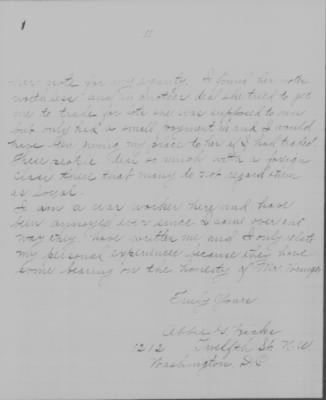 11
her note for my equity. I found her note
worthless and in another deal she tried to get
me to trade for lots she was supposed to own
but only had a small payment in and I would
have been giving my place to her if I had traded.
These people deal so much with a foreign
class there that many do not regard them
as loyal.
I am a war worker here and have
been annoyed ever since I came over the
way they have written me and I only relate
my personal experiences because they have
some bearing on the honesty of Mr.
Truly Yours
Weeks
1212 Twelfth St. N.W.
Washington, D.C.